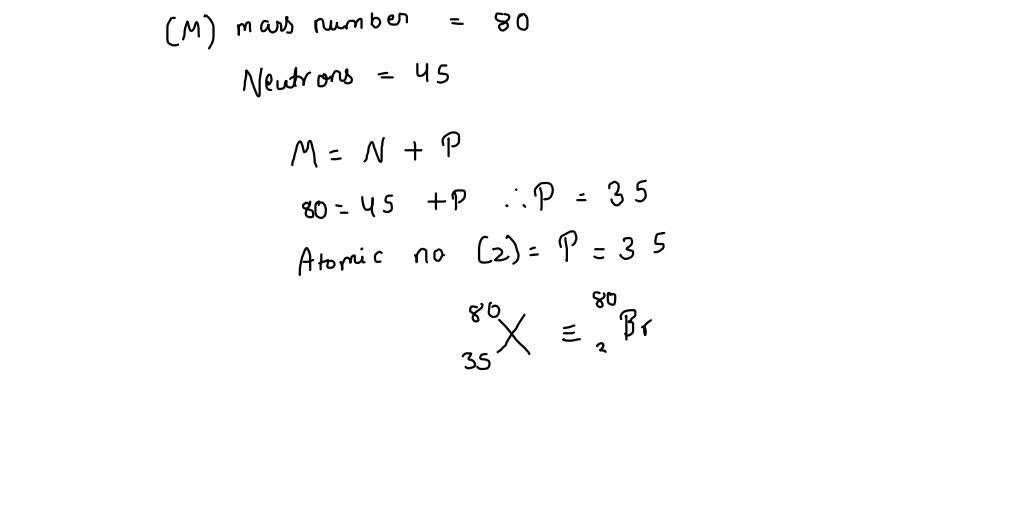 (M) mass number = 80
Neutrons = 45
M = N + P
80 = 45 + P ∴ P = 35
Atomic no (2) = P = 35
⁸⁰₃₅X ≡ ⁸⁰₂Br